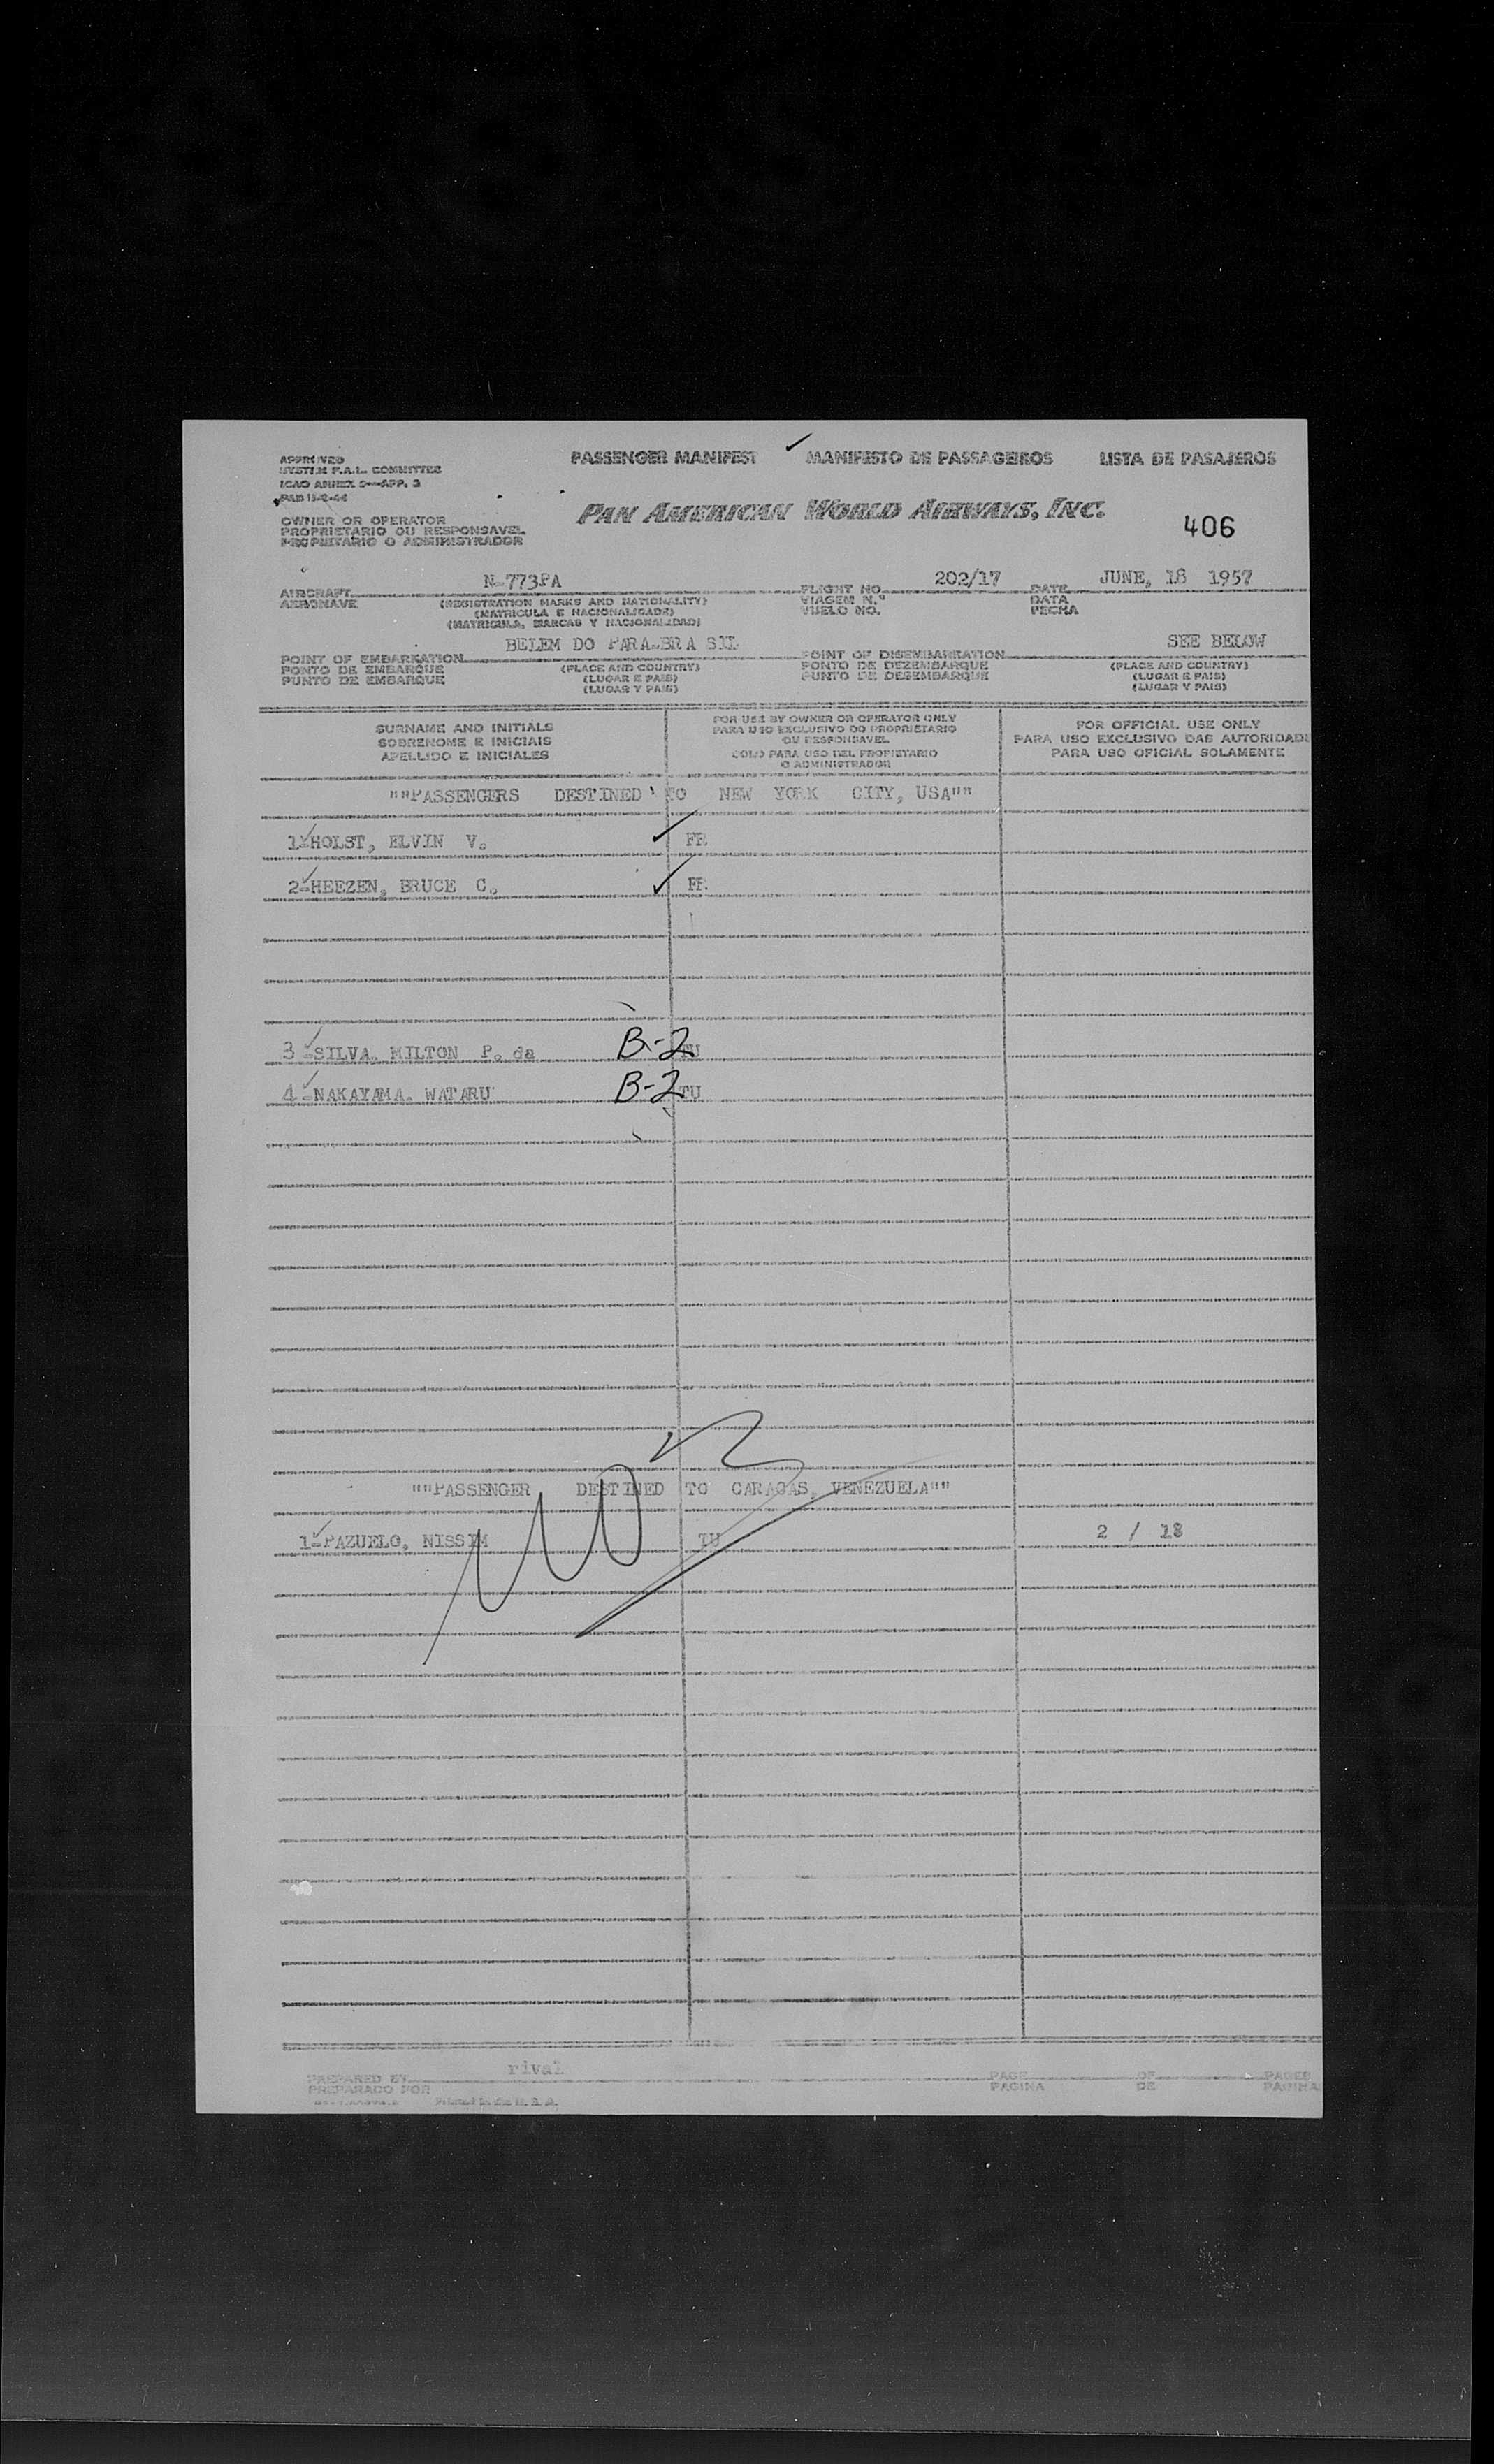 PASSENGER MANIFEST MANIFESTO DE PASSAGEIROS LISTA DE PASAJEROS
APPROVED
SYSTEM F.A.L. COMMITTEE
ICAO ANNEX 9—APP. 3
PAN AMERICAN WORLD AIRWAYS, INC.
406
OWNER OR OPERATOR
PROPRIETARIO OU RESPONSAVEL
PROPIETARIO O ADMINISTRADOR
AIRCRAFT N-773PA FLIGHT NO. 202/17 DATE JUNE, 18 1957
AERONAVE (REGISTRATION MARKS AND NATIONALITY) VIAGEM N.º DATA
(MATRICULA E NACIONALIDADE) VUELO NO. FECHA
(MATRICULA, MARCAS Y NACIONALIDAD)
POINT OF EMBARKATION BELEM DO PARA-BRASIL POINT OF DISEMBARKATION SEE BELOW
PONTO DE EMBARQUE (PLACE AND COUNTRY) PONTO DE DEZEMBARQUE (PLACE AND COUNTRY)
PUNTO DE EMBARQUE (LUGAR E PAIS) PUNTO DE DESEMBARQUE (LUGAR E PAIS)
(LUGAR Y PAIS) (LUGAR Y PAIS)
SURNAME AND INITIALS
SOBRENOME E INICIAIS
APELLIDO E INICIALES
FOR USE BY OWNER OR OPERATOR ONLY
PARA USO EXCLUSIVO DO PROPRIETARIO
OU RESPONSAVEL
SOLO PARA USO DEL PROPIETARIO
O ADMINISTRADOR
FOR OFFICIAL USE ONLY
PARA USO EXCLUSIVO DAS AUTORIDAD
PARA USO OFICIAL SOLAMENTE
""PASSENGERS DESTINED TO NEW YORK CITY, USA""
1-HOLST, ELVIN V. FR
2-HEEZEN, BRUCE C. FR
3-SILVA, MILTON P. da B-2 TU
4-NAKAYAMA, WATARU B-2 TU
""PASSENGER DESTINED TO CARACAS, VENEZUELA""
1-PAZUELO, NISSIM TU 2 / 18
PREPARED BY rival PAGE OF PAGES
PREPARADO POR PAGINA DE PAGINA
Printed in the U. S. A.